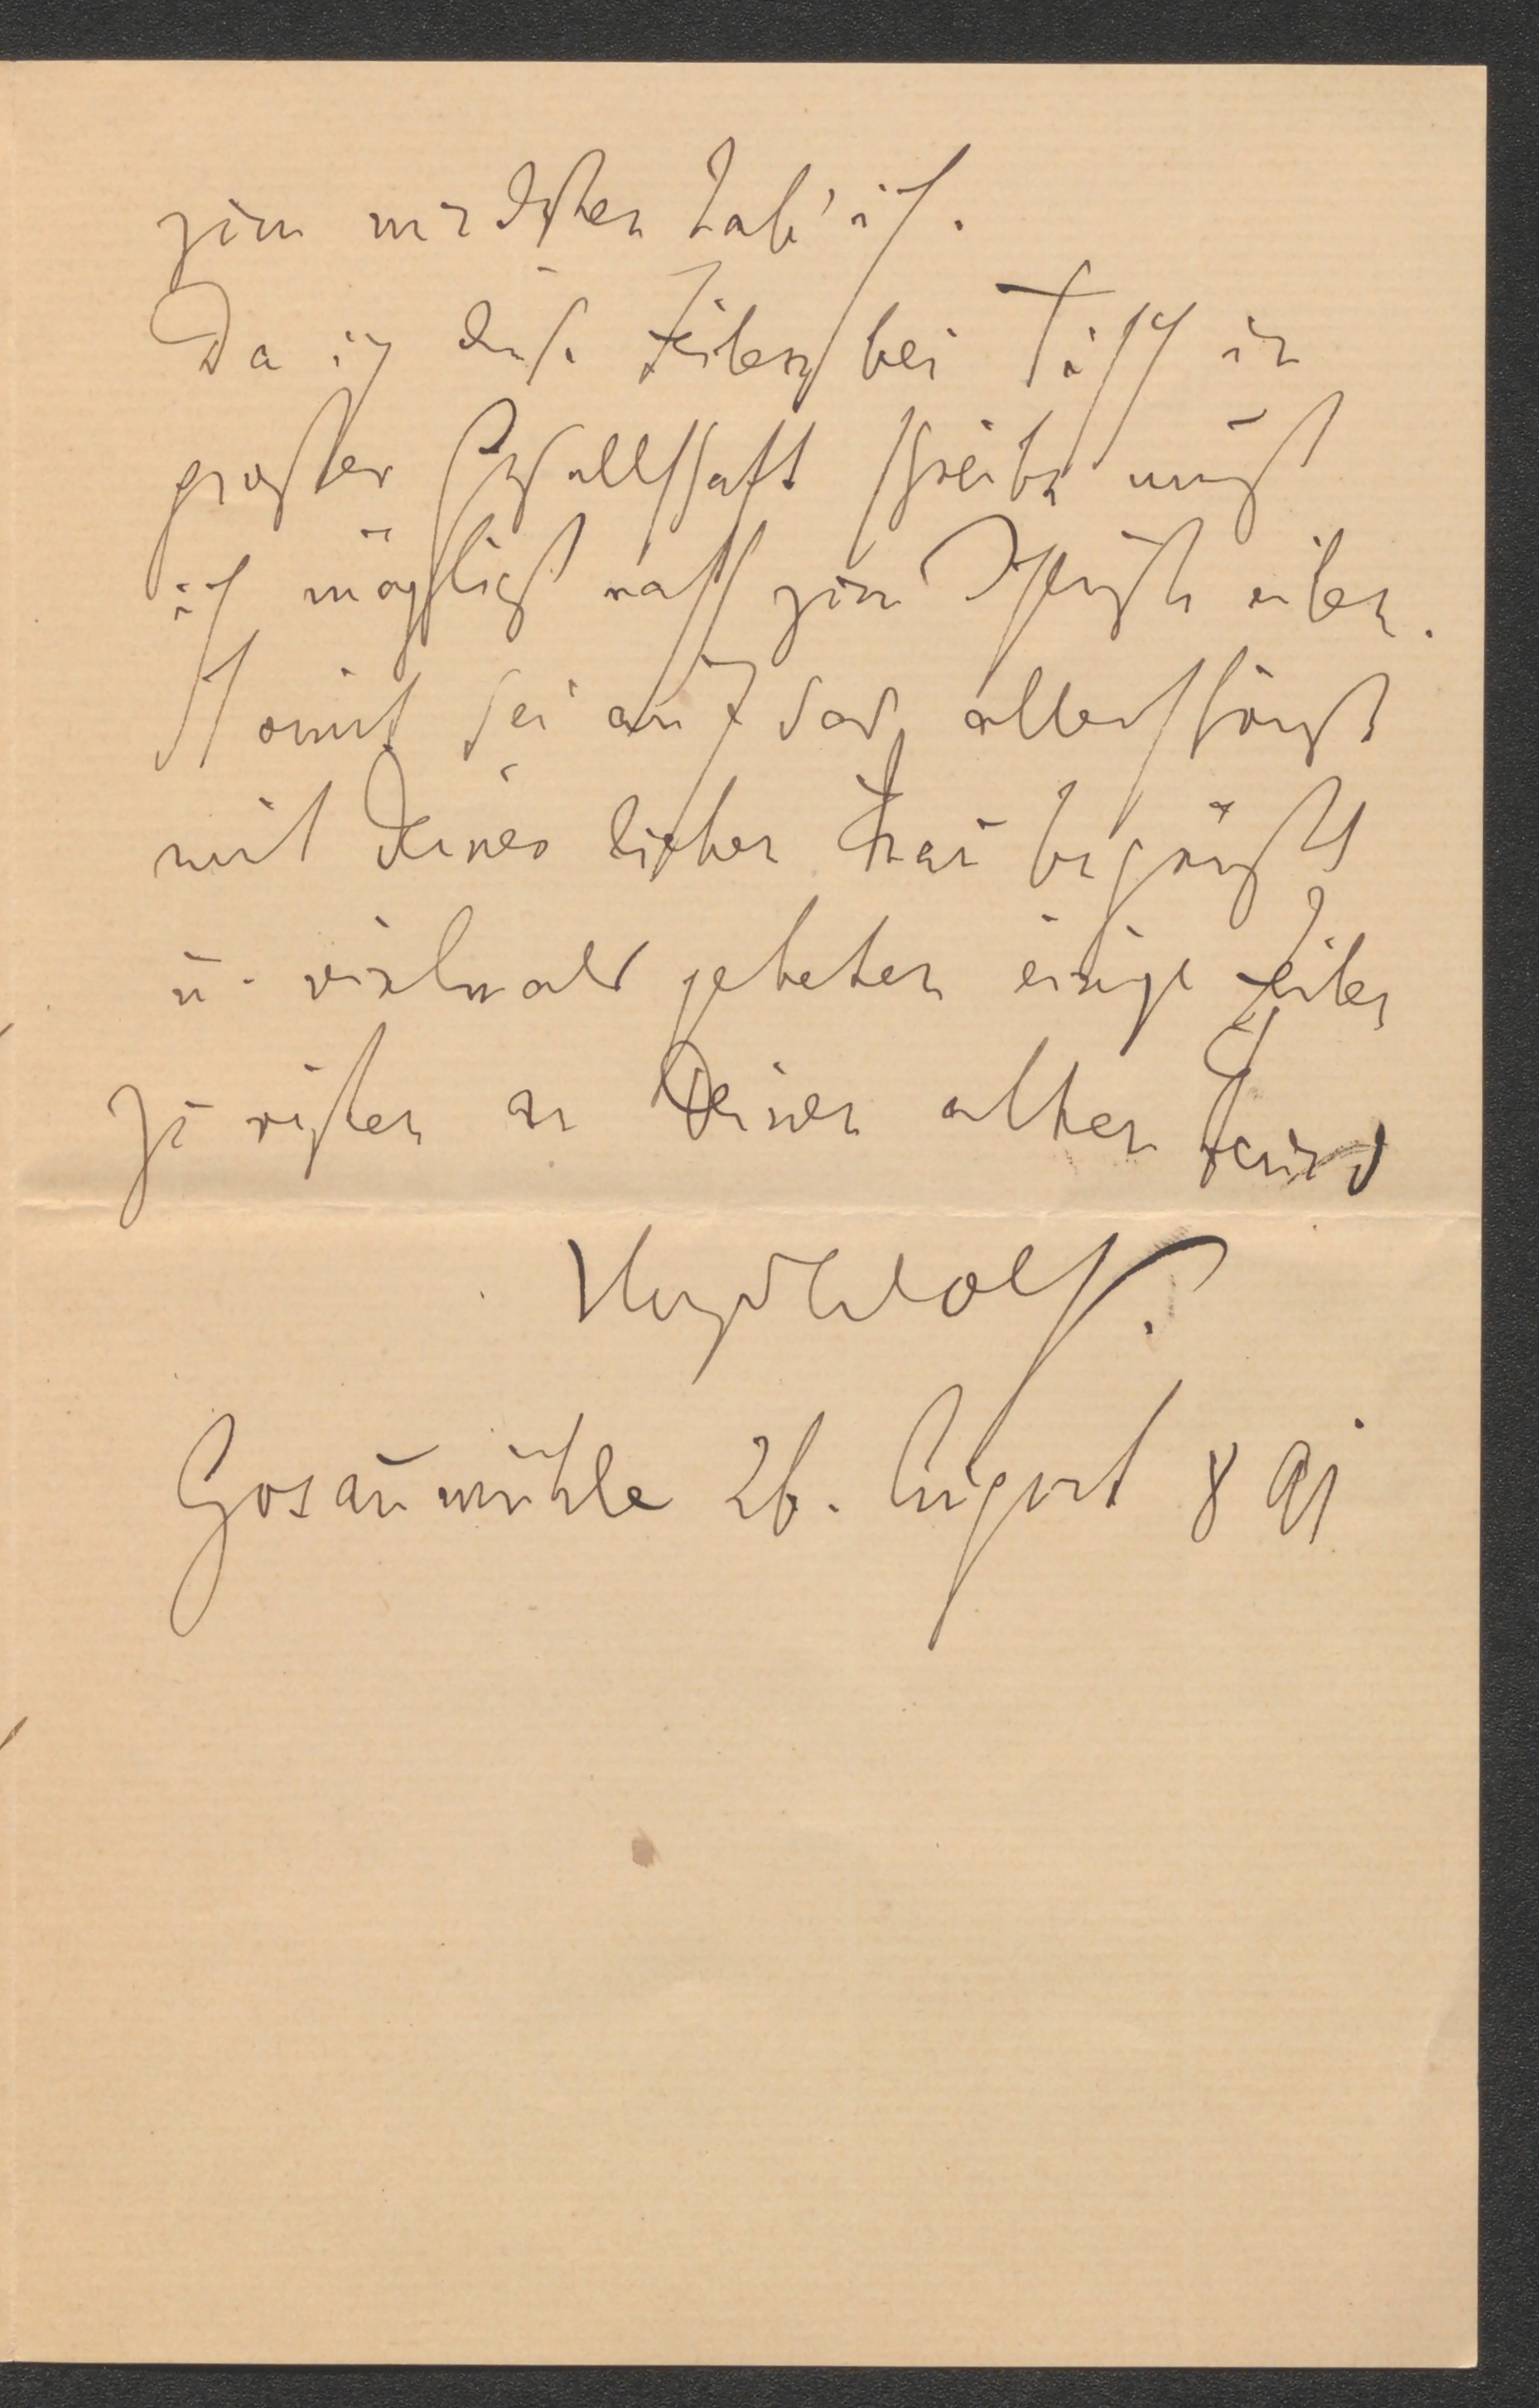 zum mindesten hab' ich.
Da ich diese Zeilen bei Tisch in
großer Gesellschaft schreibe muß
ich möglichst rasch zum Schluße eilen.
Somit sei auf das allerschönste
mit Deiner lieben Frau begrüßt
u. vielmals gebeten einige Zeilen
zu richten an Deinen alten Freund
Hugo Wolf.
Gosaumühle 26. August 891